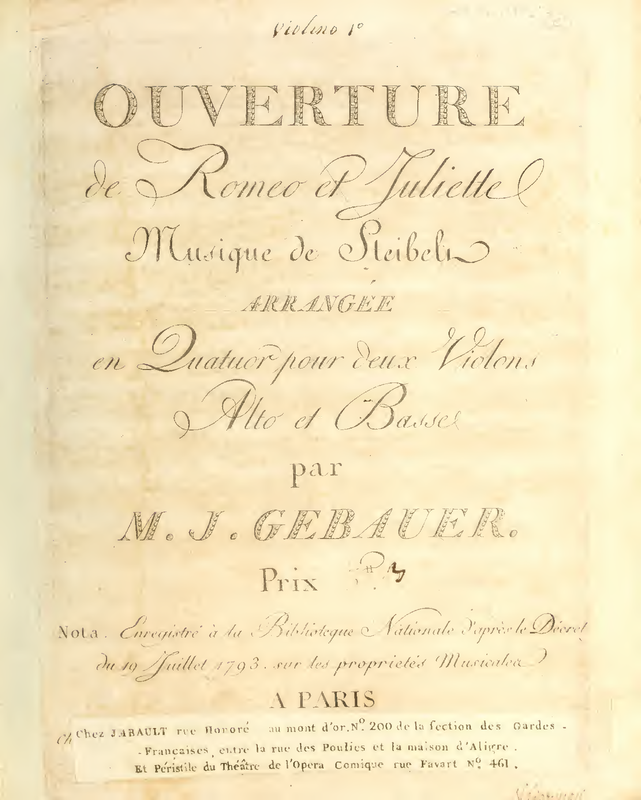 Violino 1º
OUVERTURE
de Romeo et Juliette
Musique de Steibelt
ARRANGÉE
en Quatuor pour deux Violons
Alto et Basse
par
M. J. GEBAUER.
Prix
Nota. Enregistré à la Biblioteque Nationale d'après le Décret
du 19 Juillet 1793. sur les proprietés Musicales
A PARIS
Ch
Chez JABAULT rue Honoré au mont d'or, Nº. 200 de la section des Gardes -
- Françaises, entre la rue des Poulies et la maison d'Aligre.
Et Péristile du Théâtre de l'Opera Comique rue Favart Nº. 461.